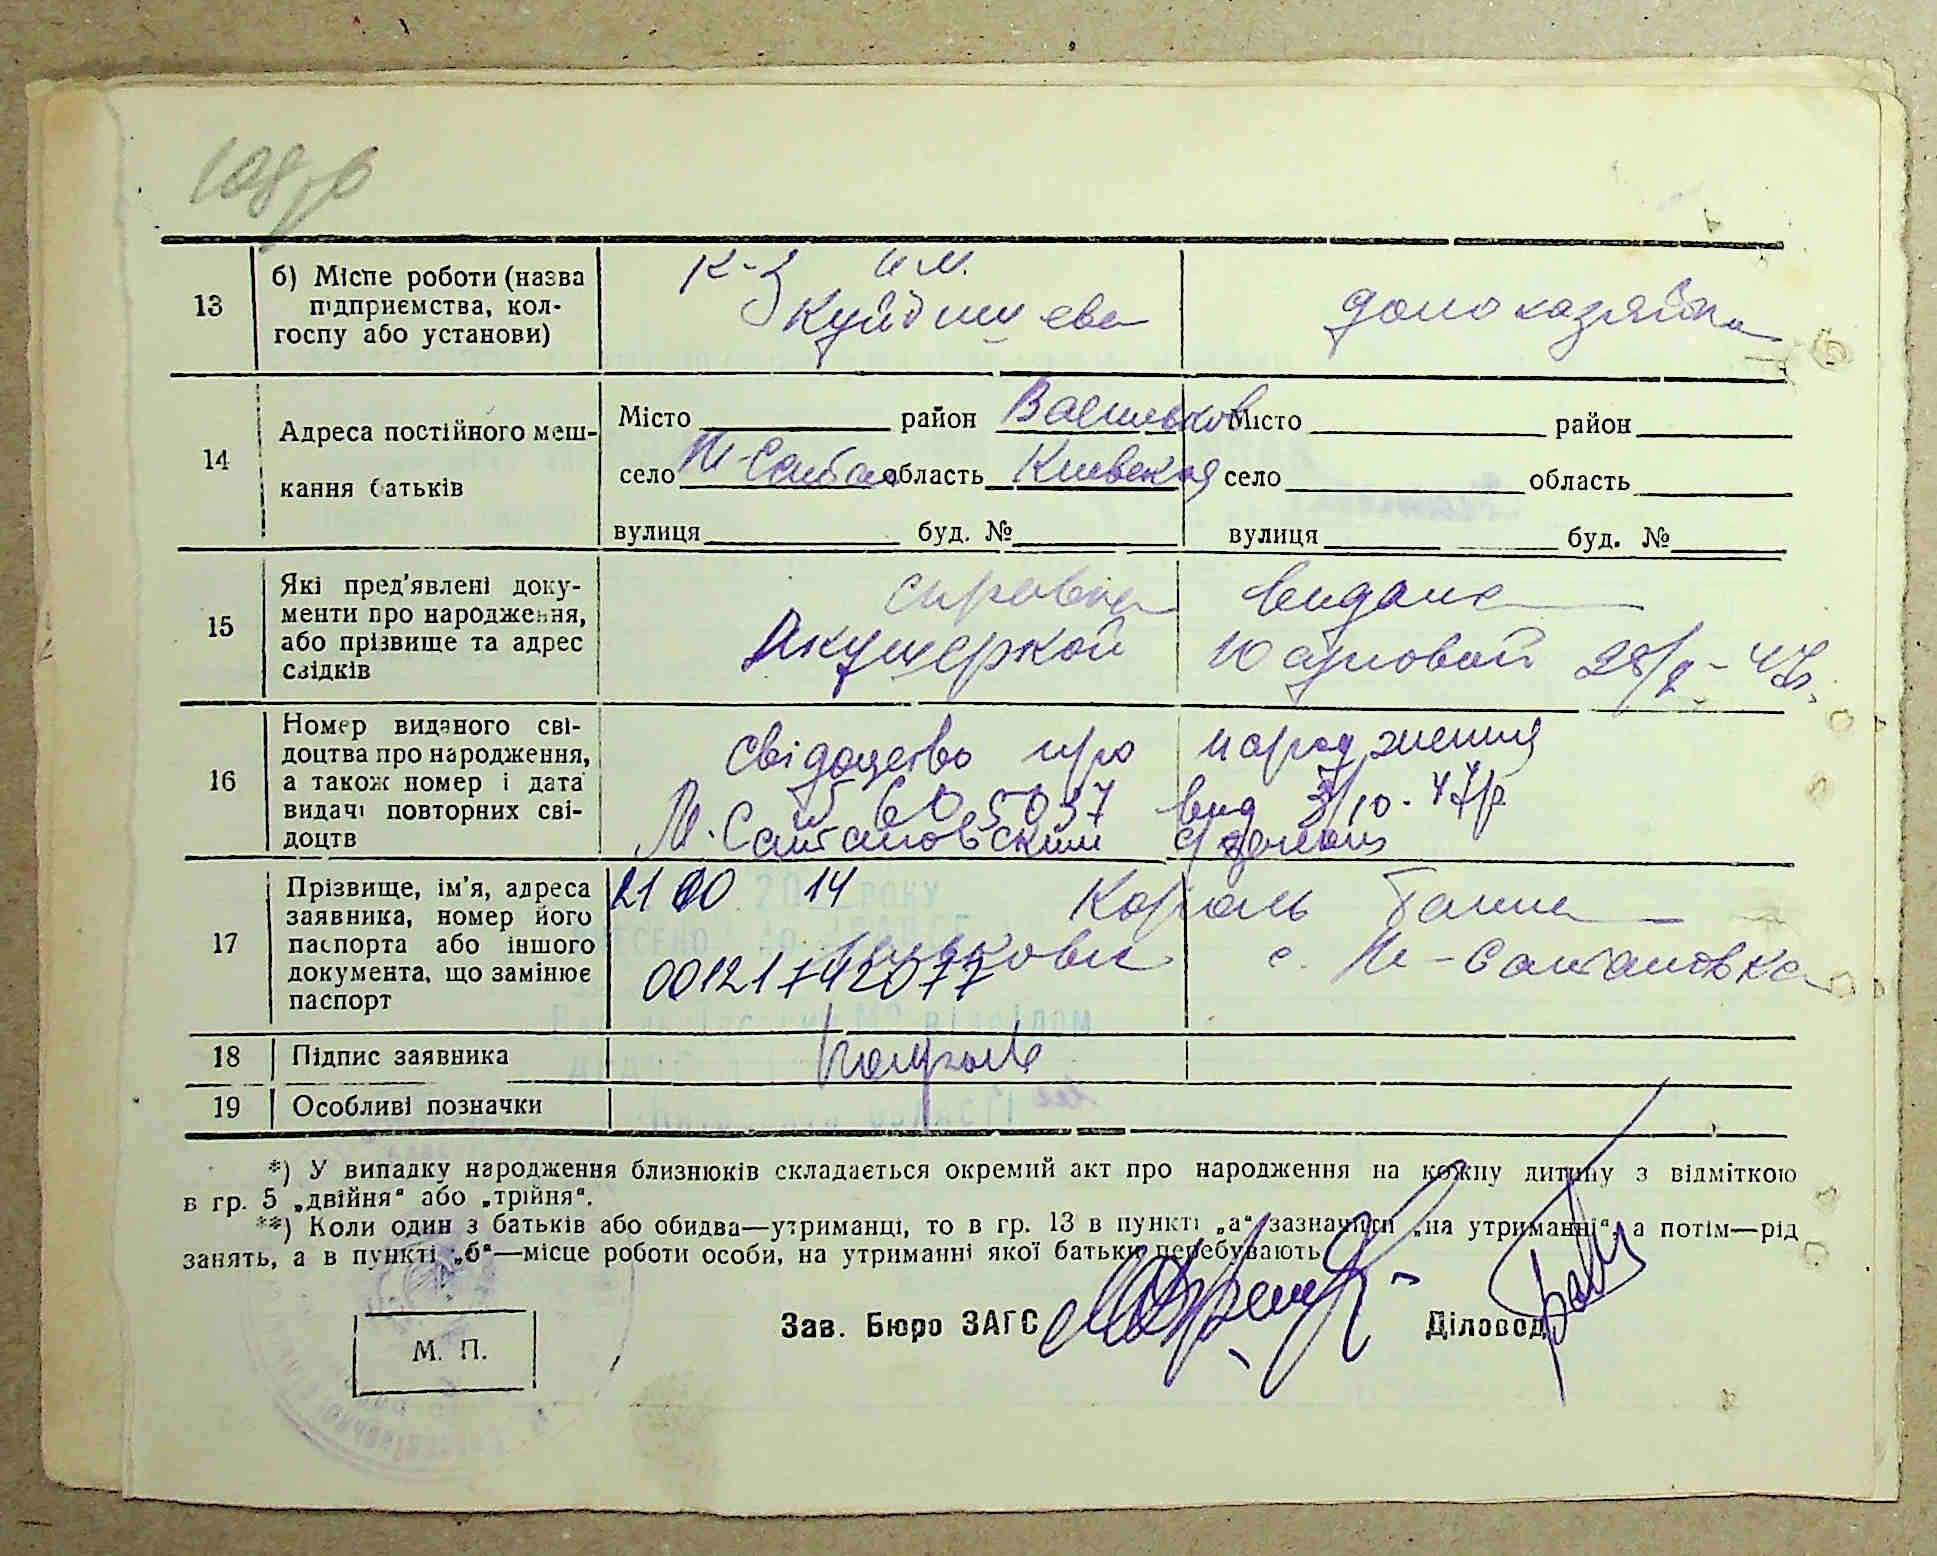 13
б) Місце роботи (назва
підприємства, кол-
госпу або установи)
к-з им.
Куйбишева
домохазяйка
14
Адреса постійного меш-
кання батьків
Місто район Васильков
село М-Салтан область Киевская
вулиця буд. №
Місто район
село область
вулиця буд. №
15
Які пред'явлені доку-
менти про народження,
або прізвище та адрес
свідків
справка видана
Акушеркой 28/ - 47р.
16
Номер виданого сві-
доцтва про народження,
а також номер і дата
видачі повторних сві-
доцтв
свідоцтво про народження
605037 вид 3/10-47р
М. Салтановский
17
Прізвище, ім'я, адреса
заявника, номер його
паспорта або іншого
документа, що замінює
паспорт
14 Король Ганна
00121742077 с. М-Салтановка
18
Підпис заявника
19
Особливі позначки
*) У випадку народження близнюків складається окремий акт про народження на кожну дитину з відміткою
в гр. 5 „двійня“ або „трійня“.
**) Коли один з батьків або обидва—утриманці, то в гр. 13 в пункті „а“ зазначити „на утриманні“, а потім—рід
занять, а в пункті „б“—місце роботи особи, на утриманні якої батьки перебувають
Зав. Бюро ЗАГС
Діловод
М. П.